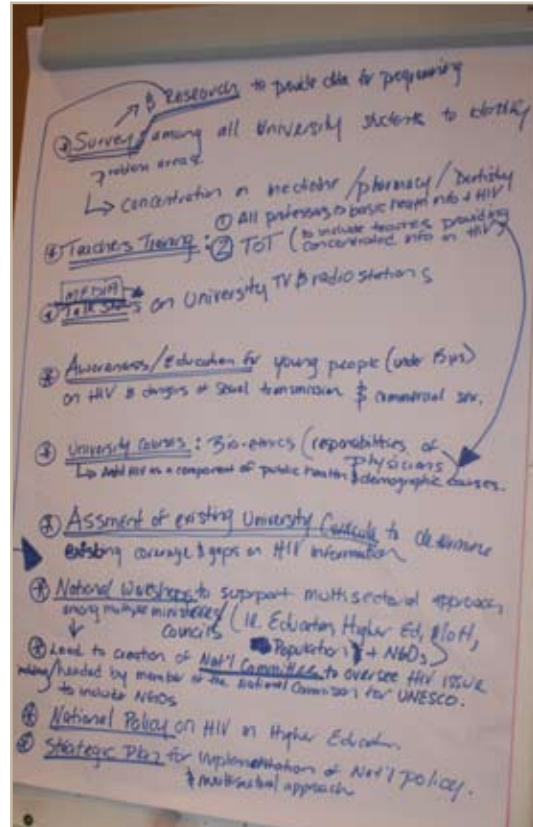 & Research to provide data for programming
* Survey among all University students to identify
problem areas
↳ concentration on medicine/pharmacy/Dentistry
* Teachers Training: ① All professors to basic health info & HIV
② ToT (to include teachers providing concentrated info on HIV)
MEDIA
* Talk Shows on University TV & radio stations
* Awareness/Education for young people (under 15yrs)
on HIV & dangers of sexual transmission & commercial sex.
* University Courses: Bio-ethics (responsibilities of physicians)
↳ Add HIV as a component of public health & demographic courses.
* Assment of existing University Curricula to determine
existing coverage & gaps on HIV information
* National Workshops to support multisectorial approach
among multiple ministries/councils (ie. Education, Higher Ed, MoH,
Population) + NGOs)
* Lead to creation of Nat'l Committee to oversee HIV issue
/headed by member of the National Commision for UNESCO.
to include NGOs
* National Policy on HIV on Higher Education
* Strategic Plan for implementation of Nat'l policy.
& multisectral approach